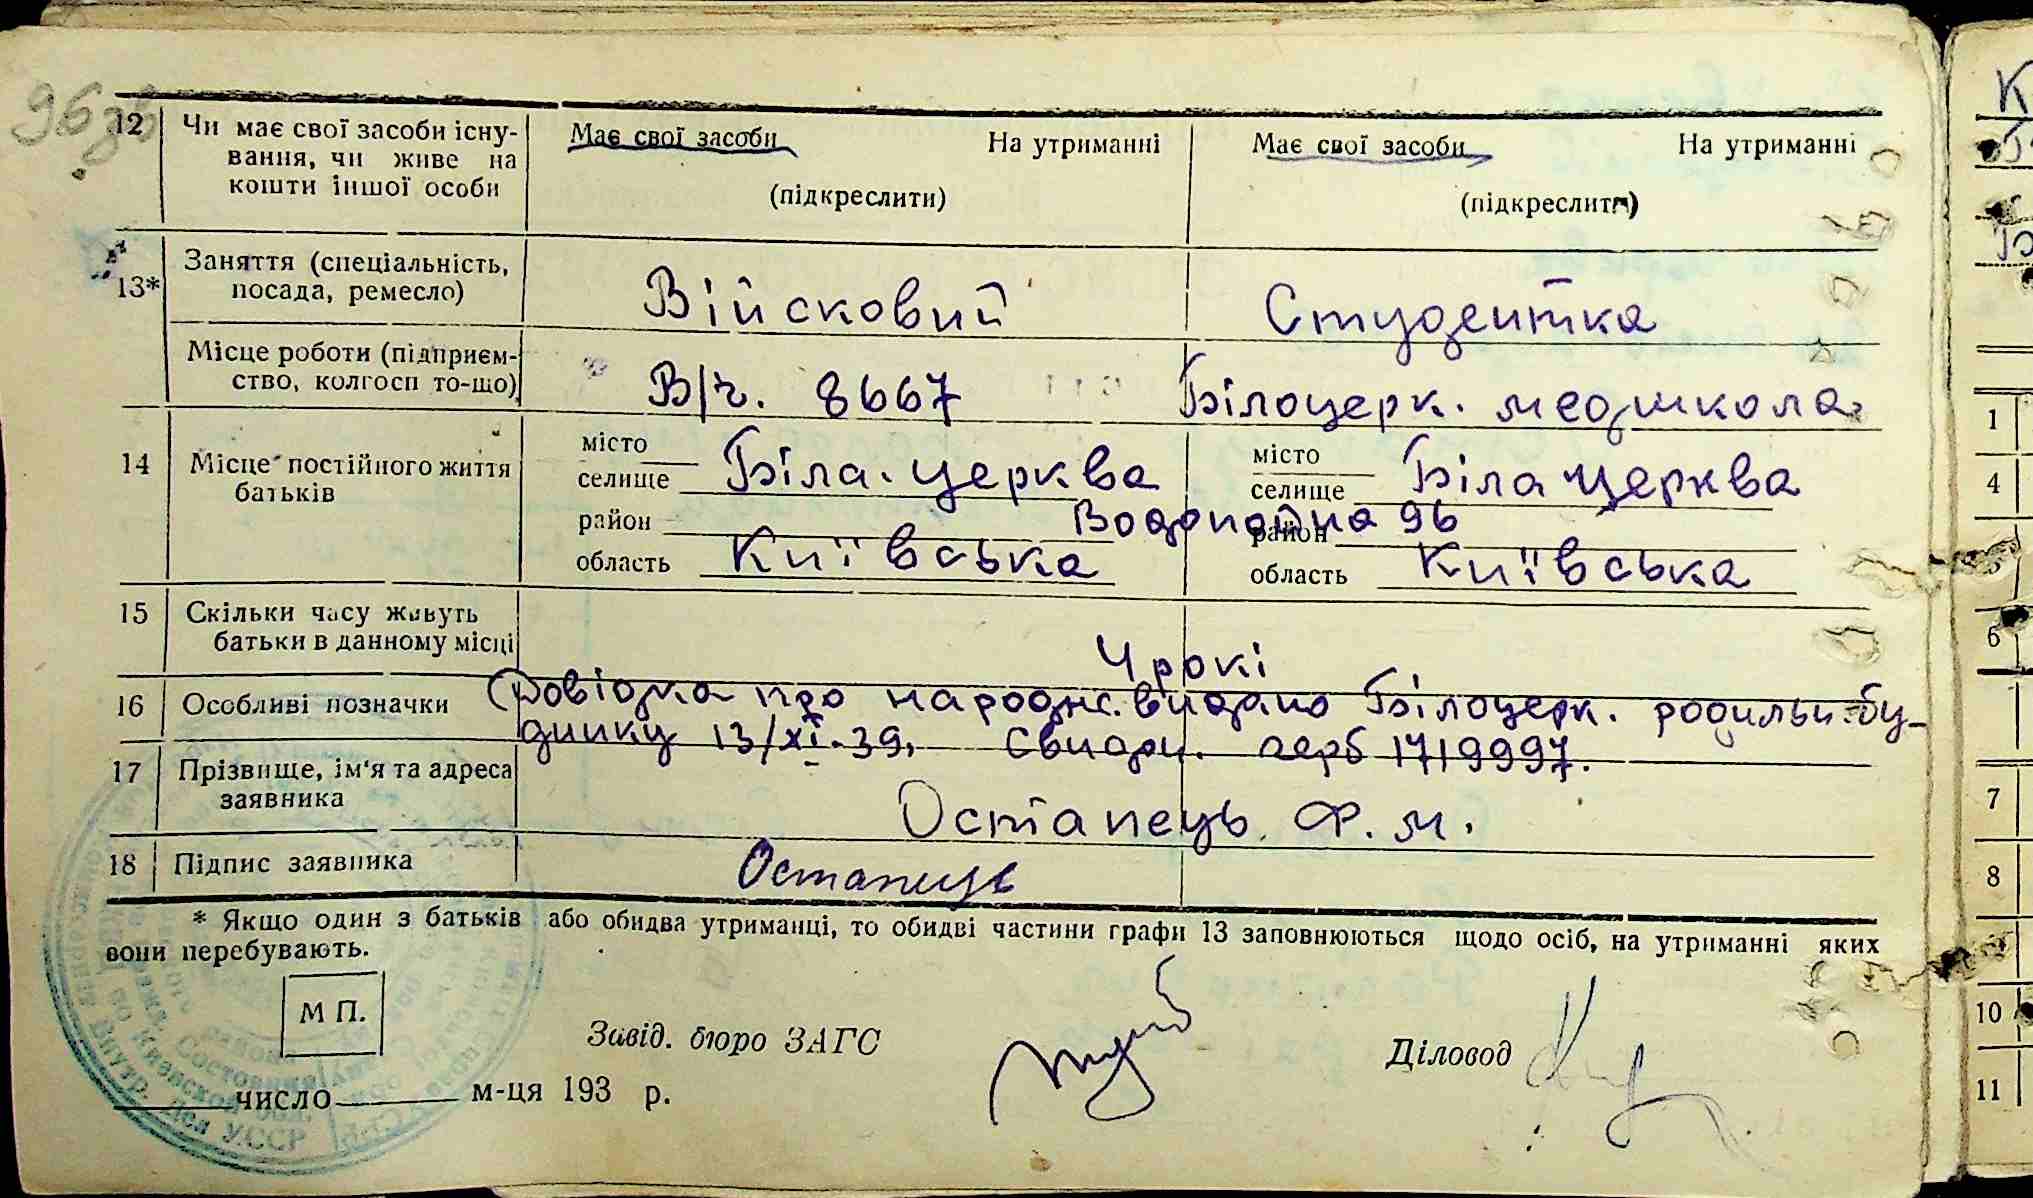 96зв
12 Чи має свої засоби існу- Має свої засоби На утриманні Має свої засоби На утриманні
вання, чи живе на
кошти іншої особи (підкреслити) (підкреслити)
13* Заняття (спеціальність, посада, ремесло) Військовий Студентка
Місце роботи (підприєм-
ство, колгосп то-що) В/ч. 8667 Білоцерк. медшкола
14 Місце постійного життя батьків
місто селище Біла-церква місто селище Біла церква
район район Водопойна 96
область Київська область Київська
15 Скільки часу живуть
батьки в данному місці 4 рокі
16 Особливі позначки Довідка про народж. видано Білоцерк. родильн. бу-
динку 13/XI-39. Свидрц. герб 1719997.
17 Прізвище, ім'я та адреса
заявника Остапець Ф. М.
18 Підпис заявника Остапець
* Якщо один з батьків або обидва утриманці, то обидві частини графи 13 заповнюються щодо осіб, на утриманні яких
вони перебувають.
М П.
Завід. бюро ЗАГС Діловод
число м-ця 193 р.
К
Б
Б
1
4
5
6
7
8
9
10
11